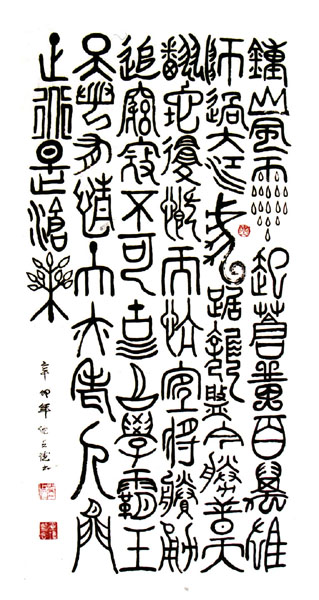 鍾山風雨起蒼黃百萬雄
師過大江虎踞龍盤今勝昔天
翻地覆慨而慷宜將剩勇
追窮寇不可沽名學霸王
天若有情天亦老人間
正道是滄桑
辛卯年